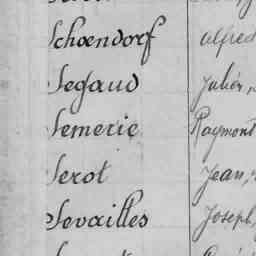 Schoendorf Alfred
Segaud Julien,
Semerie Raymont
Serot Jean,
Sevailles Joseph,